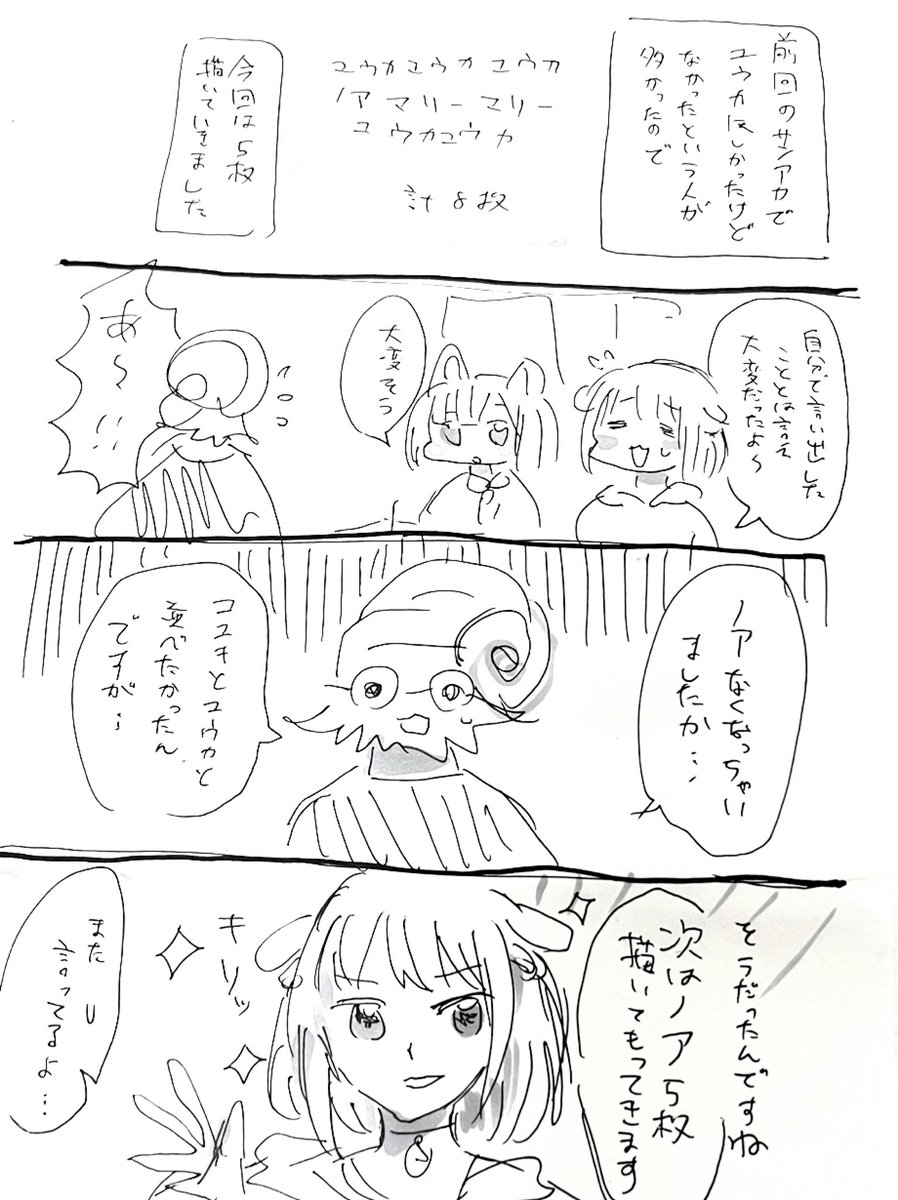 前回のサンアカで
ユウカ欲しかったけど
なかったという人が
多かったので
ユウカユウカ ユウカ
ノア マリー マリー
ユウカユウカ
計8枚
今回は5枚
描いていきました
自分で言い出した
こととは言え
大変だったよ〜
大変そう
あ〜!!!
ノアなくなっちゃい
ましたか…
コユキとユウカと
並べたかったん
ですが…
そうだったんですね
次はノア5枚
描いてもってきます
キリッ
また
言ってるよ…